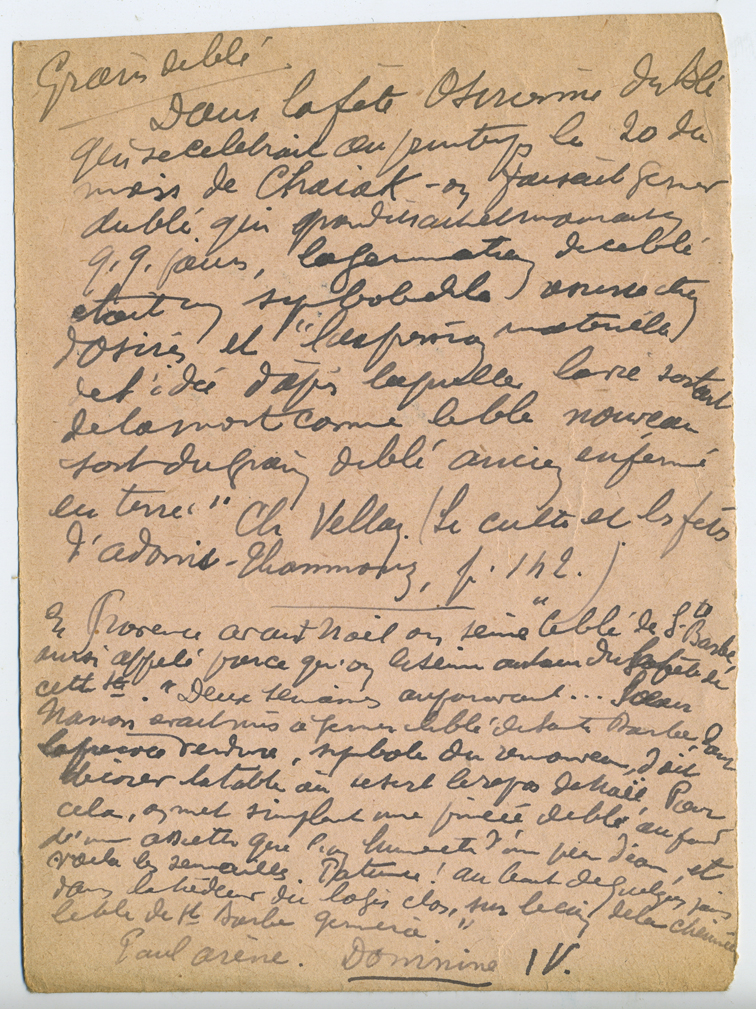 Grains de blé
Dans la fête Osirienne du blé
qui se célébrait au printemps le 20 du
mois de Choiak - on faisait germer
du blé qui grandissait et mourait en
q.q. jours, la germination de ce blé
était un symbole de la résurrection
d'Osiris et "l'expression matérielle
de l'idée d'après laquelle la vie sortait
de la mort comme le blé nouveau
sort du grain de blé ancien enfermé
en terre." Ch Vellay (Le culte et les fêtes
d'Adonis-Thammouz, p. 142.)
En Provence avant Noël on sème "le blé de Ste Barbe,
ainsi appelé parce qu'on le sème autour du la fête de
cette Ste. "Deux semaines auparavant...
Nanon avait mis à germer le blé de Sainte Barbe, dont
la précoce verdure, symbole du renouveau, doit
décorer la table où se sert le repos de Noël. Pour
cela, on met simplement une pincée de blé au fond
d'une assiette que l'on humecte d'un peu d'eau, et
voilà les semailles. Patience! au bout de quelques jours
dans la tiédeur du logis clos, sur le coin de la cheminée
le blé de Ste Barbe germera."
Paul Arène. Domnine IV.